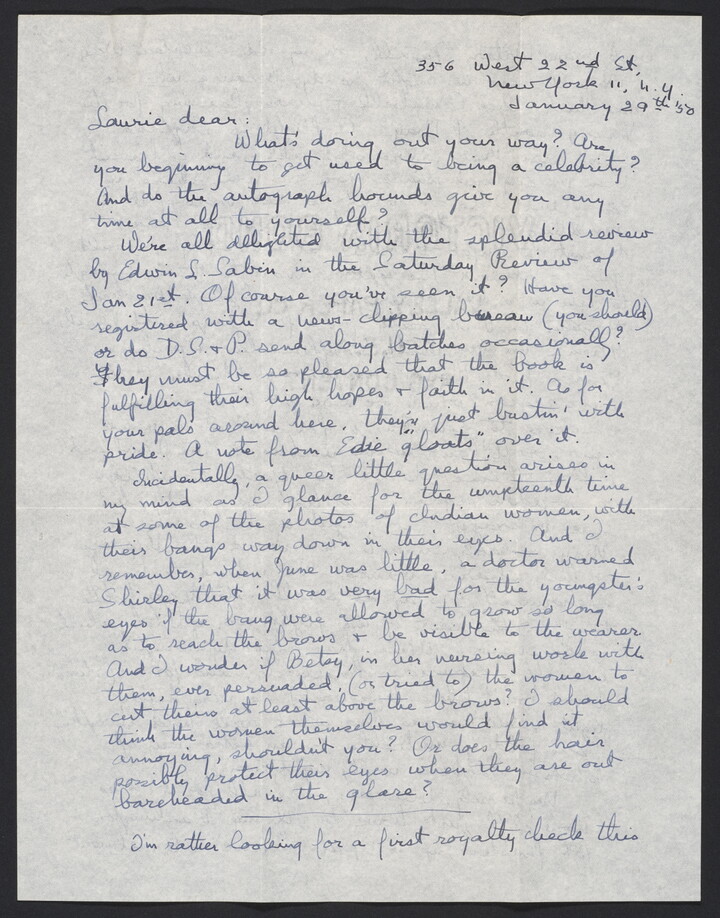 356 West 22nd St,
New York 11, N.Y.
January 29th '50
Laurie dear:
What's doing out your way? Are
you beginning to get used to being a celebrity?
And do the autograph hounds give you any
time at all to yourself?
We're all delighted with the splendid review
by Edwin L. Sabin in the Saturday Review of
Jan 21st. Of course you've seen it? Have you
registered with a news-clipping bureau (you should)
or do D.S. + P. send along batches occasionally?
They must be so pleased that the book is
fulfilling their high hopes + faith in it. As for
your pals around here, they're just bustin' with
pride. A note from Edie "gloats" over it.
Incidentally, a queer little question arises in
my mind as I glance for the umpteenth time
at some of the photos of Indian women, with
their bangs way down in their eyes. And I
remember, when June was little, a doctor warned
Shirley that it was very bad for the youngster's
eyes if the bang were allowed to grow so long
as to reach the brows + be visible to the wearer.
And I wonder if Betsy, in her nursing work with
them, ever persuaded, (or tried to) the women to
cut theirs at least above the brows? I should
think the women themselves would find it
annoying, shouldn't you? Or does the hair
possibly protect their eyes when they are out
bareheaded in the glare?
I'm rather looking for a first royalty check this